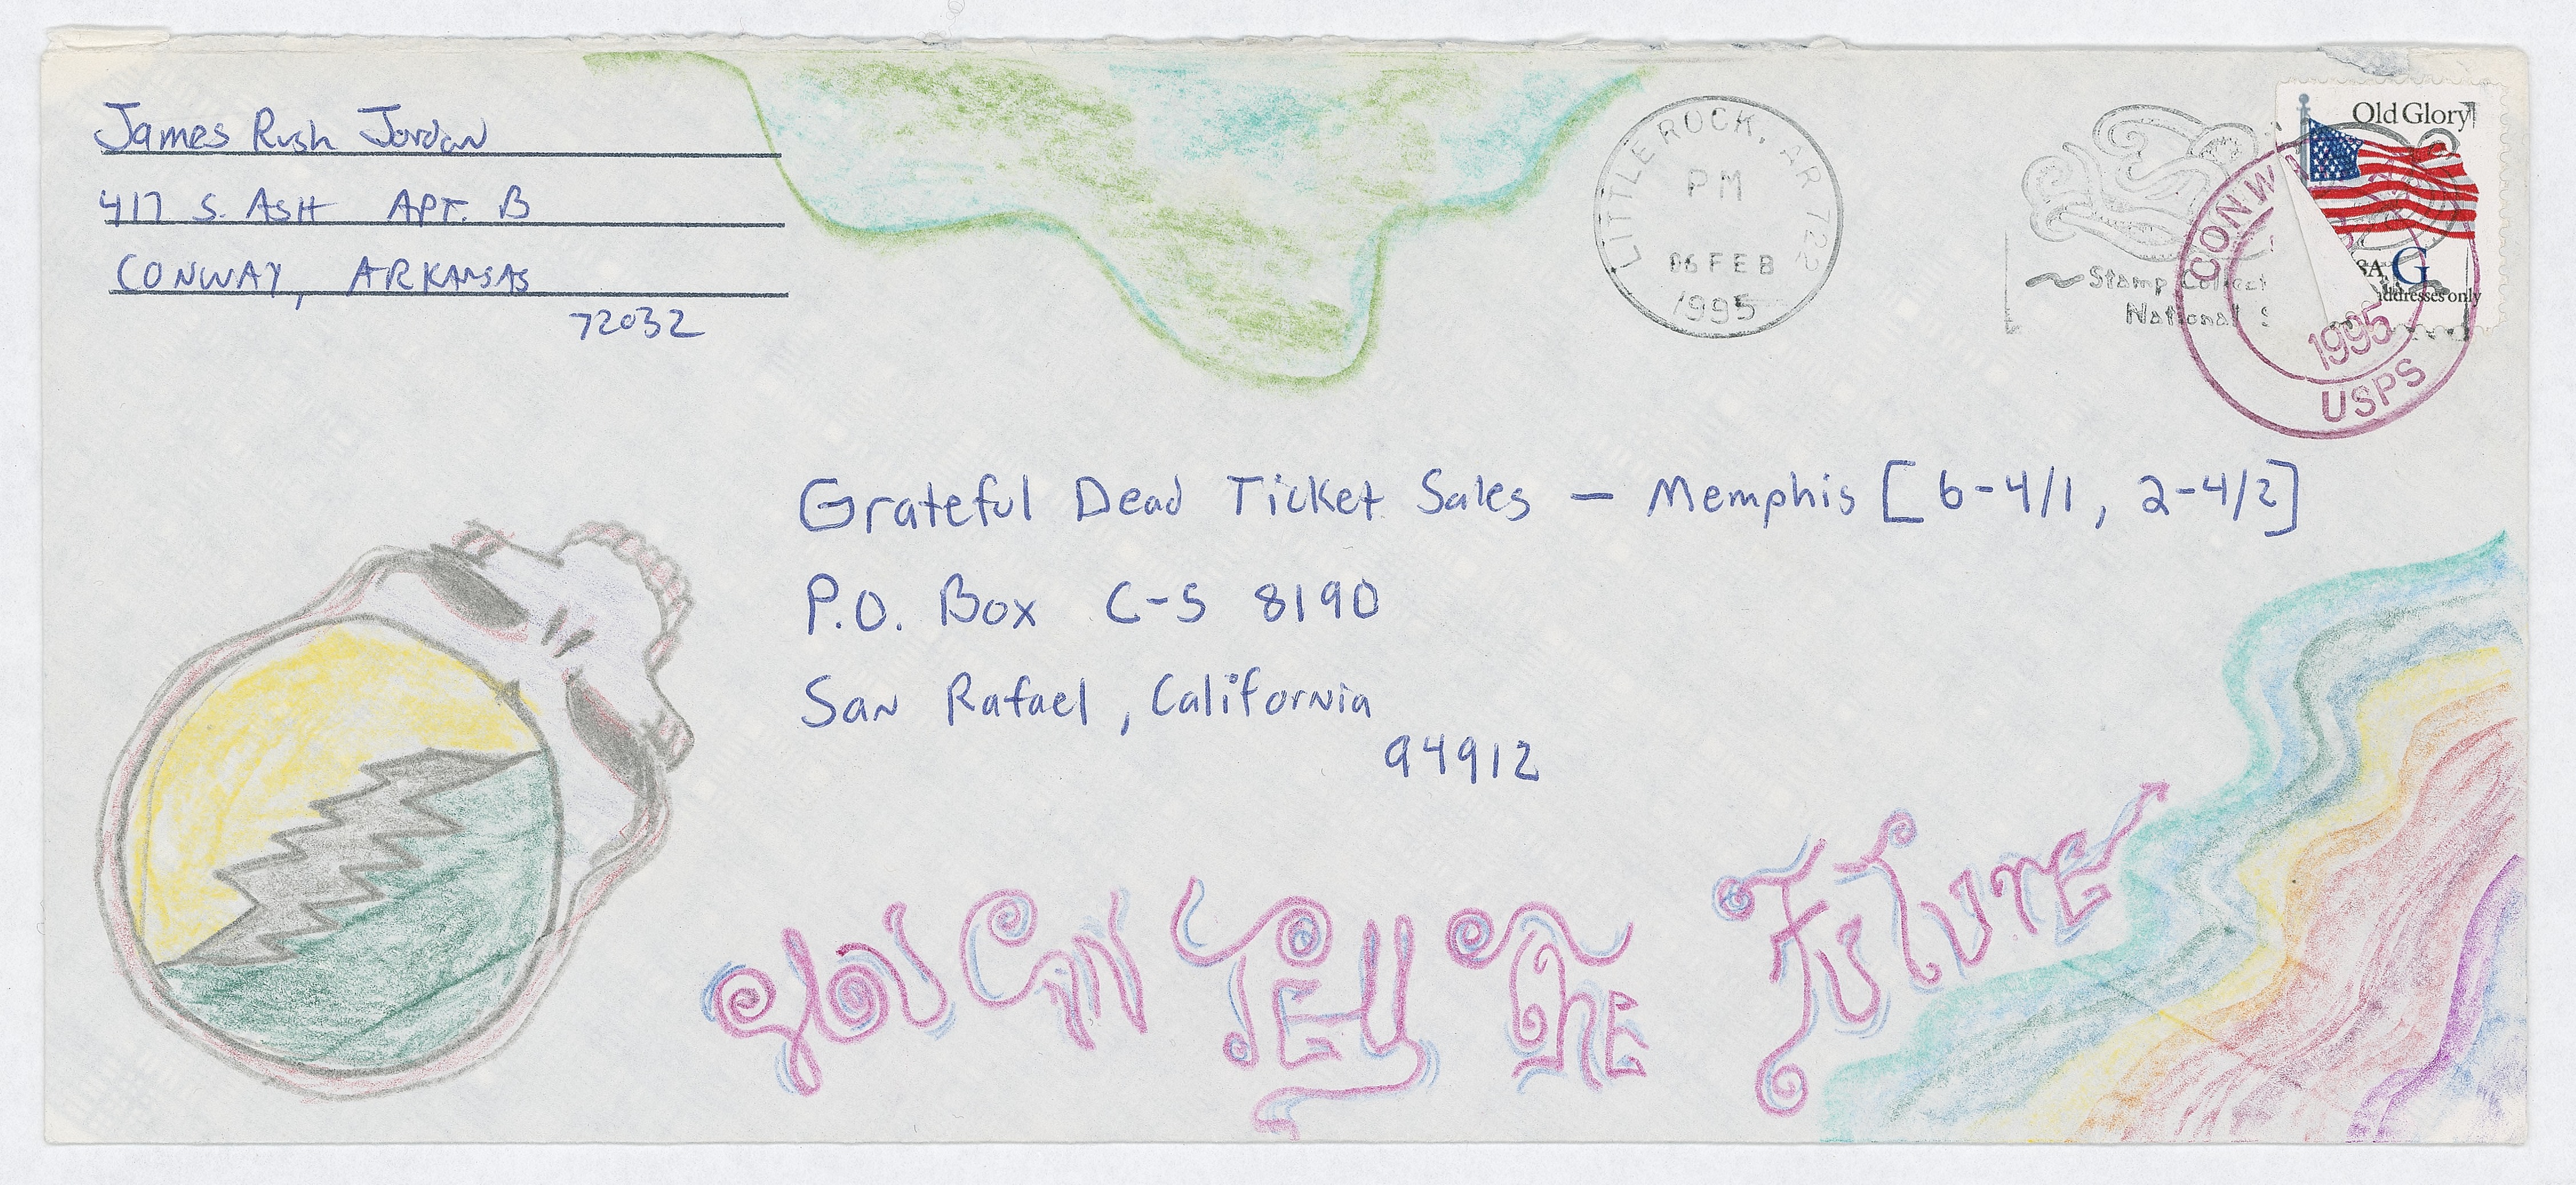 James Rush Jordan
417 S. ASH APT. B
CONWAY, ARKANSAS
72032
LITTLE ROCK, AR 722
PM
06 FEB
1995
Stamp Collect
National
Old Glory
G
addresses only
CONWA
1995
USPS
Grateful Dead Ticket Sales — Memphis [6-4/1, 2-4/2]
P.O. Box C-S 8190
San Rafael, California
94912
you Can Tell The Future